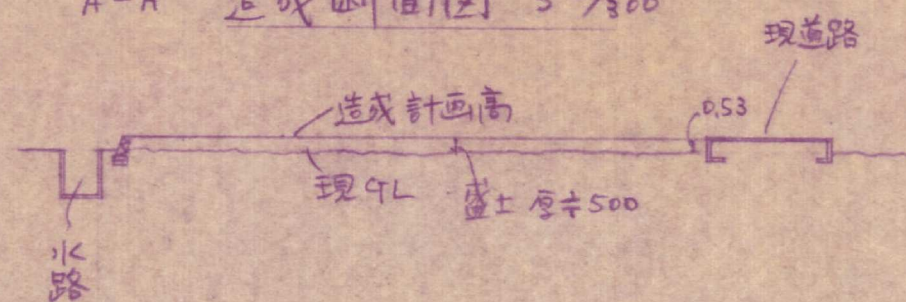 A-A 造成断面図 S 1/300
現道路
造成計画高
0.53
現GL
盛土 厚≒500
水路